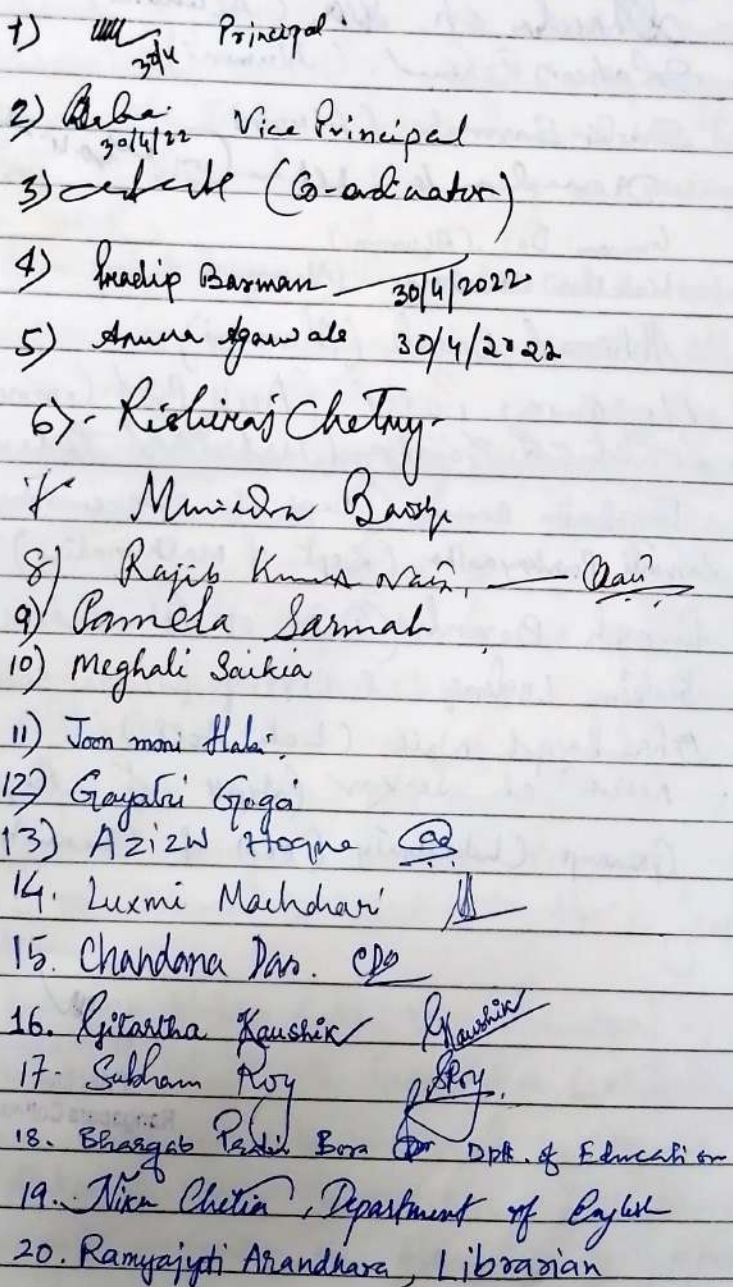 1) Principal
30/4
2) 30/4/22 Vice Principal
3) (Co-ordinator)
4) Pradip Barman 30/4/2022
5) Anura Agarwale 30/4/2022
6) Rishiraj Chetry
7 Munindra
8) Rajib Kumar Nath
9) Pamela Sarmah
10) Meghali Saikia
11) Joon moni Haloi
12) Gayatri Gogoi
13) Azizul Hoque
14. Luxmi Machahari
15. Chandana Das. CDas
16. Gitartha Kaushik GKaushik
17. Subham Roy SRoy.
18. Bhargab Bora Dptt. of Education
19. Niku Chetia, Department of English
20. Ramyajyoti Arandhara, Librarian